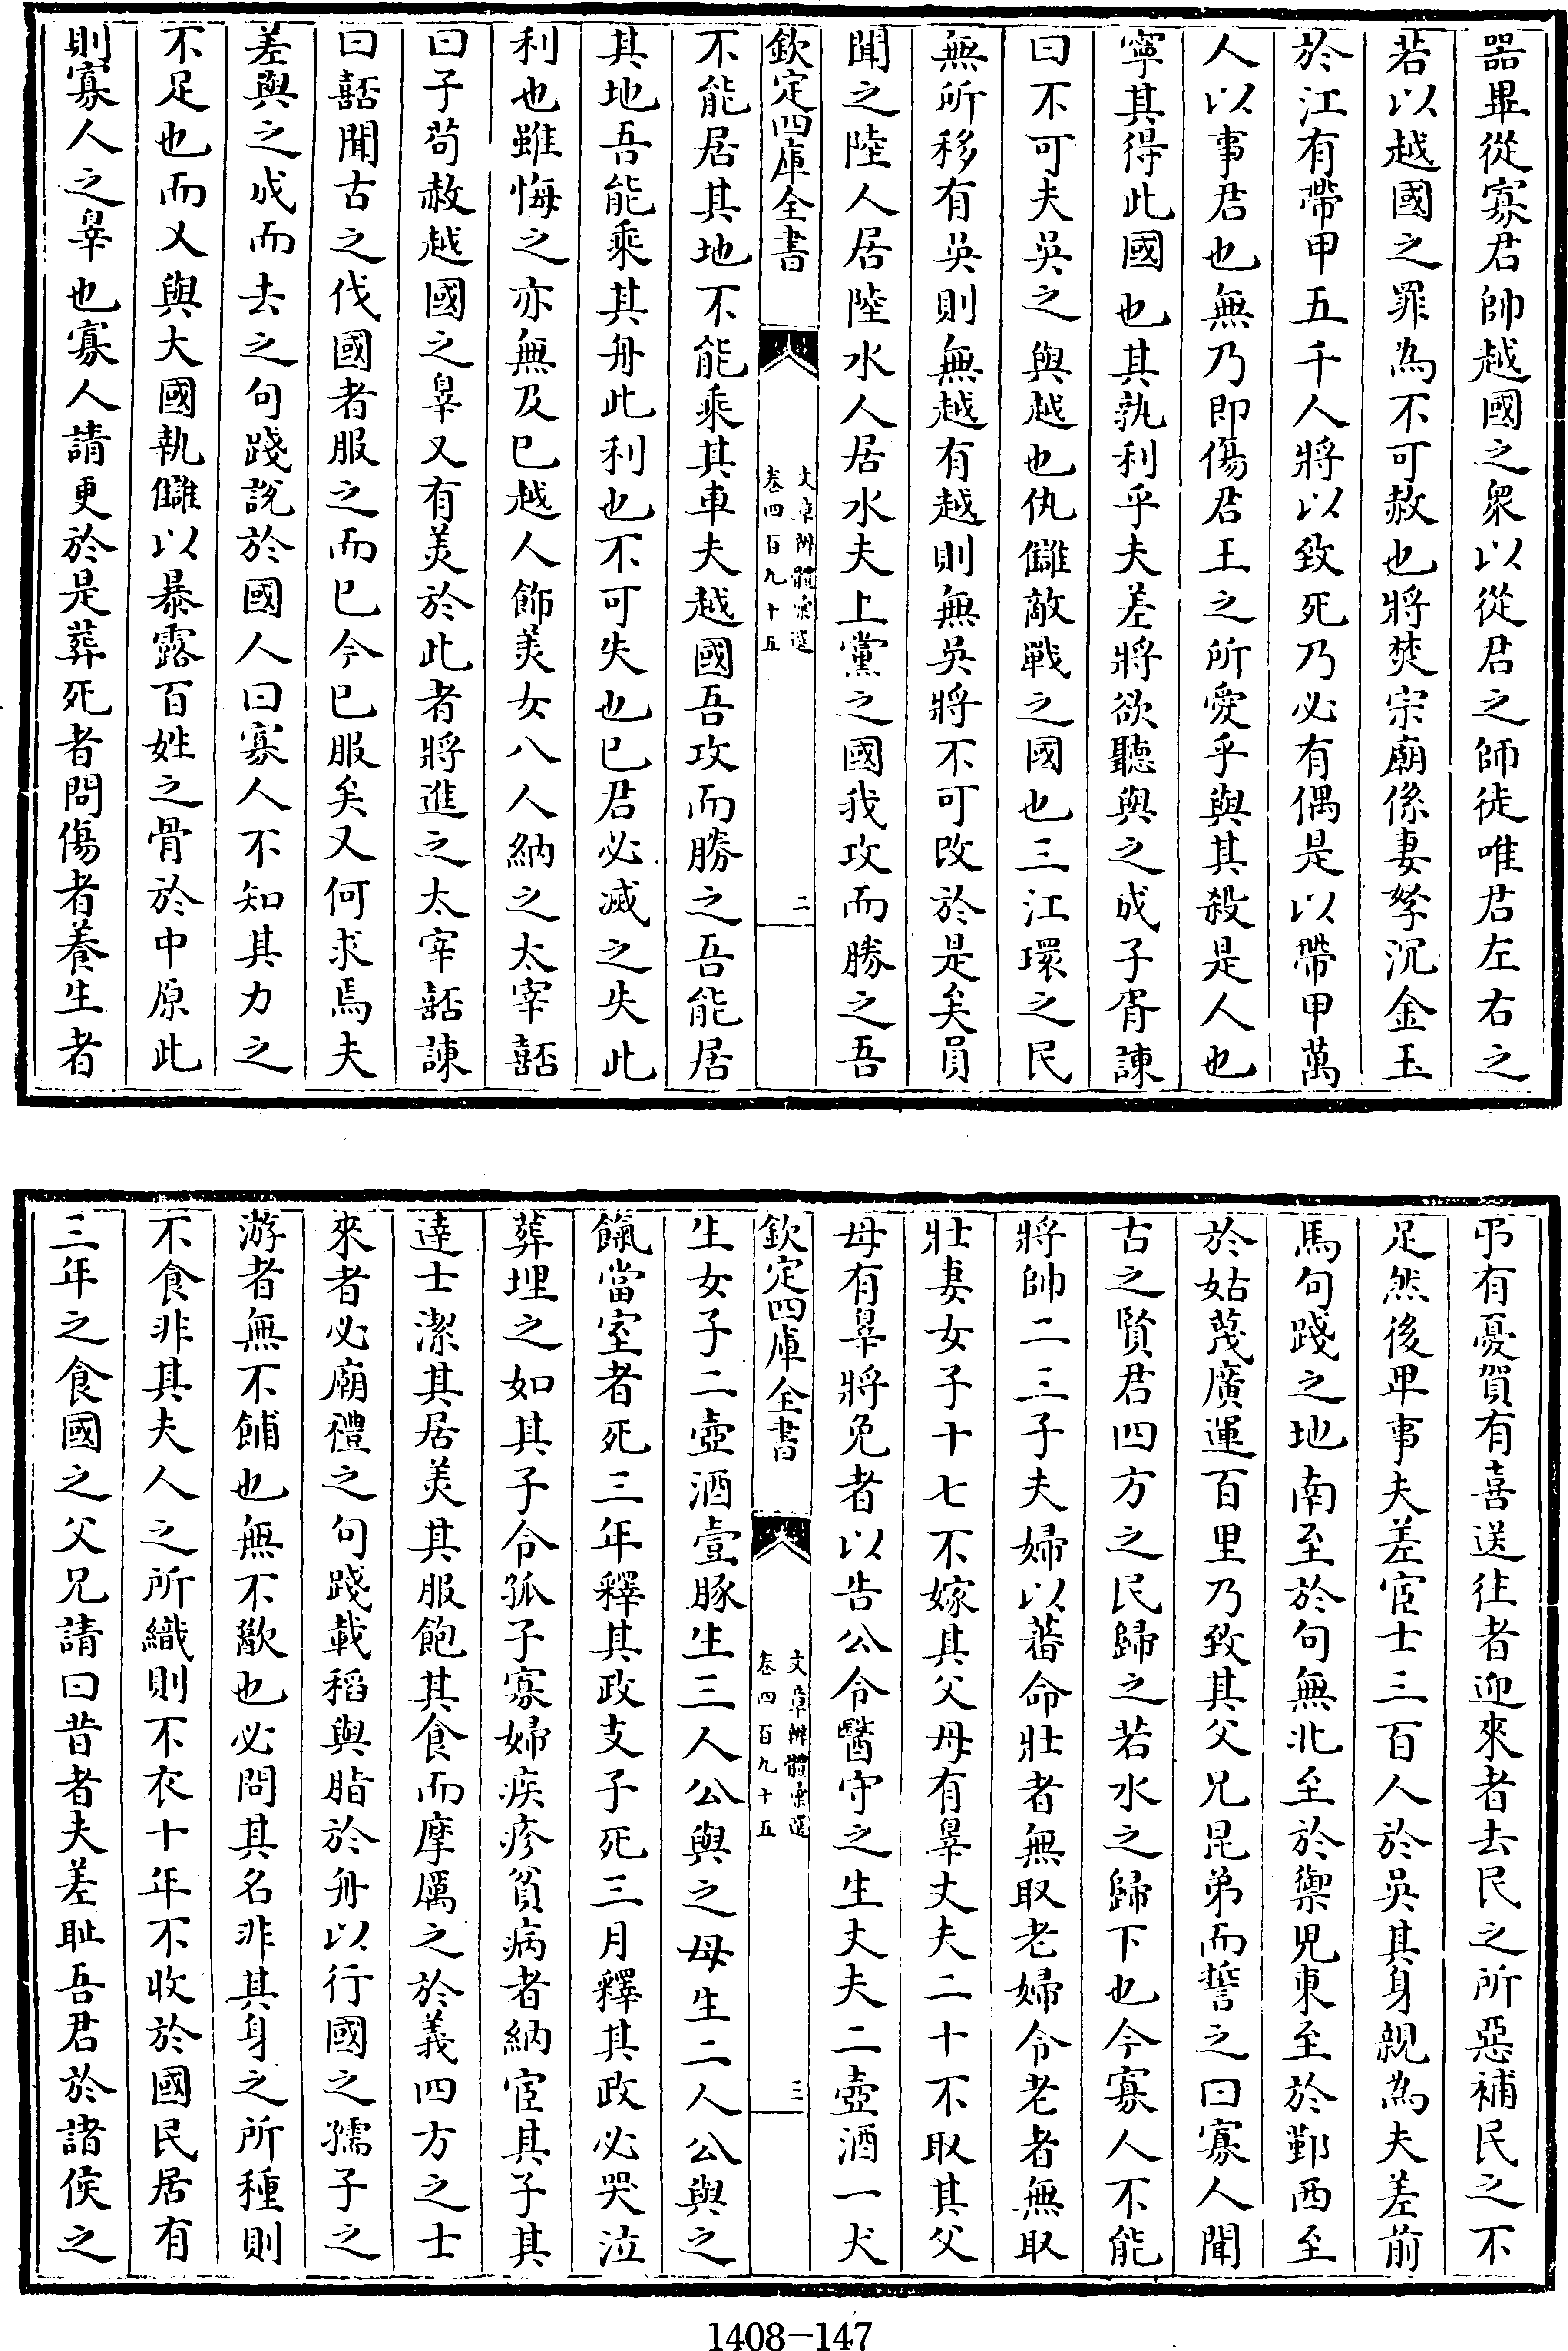 器畢從寡君帥越國之衆以從君之師徒唯君左右之
若以越國之罪為不可赦也將焚宗廟係妻孥沉金玉
於江有帶甲五千人將以致死乃必有偶是以帶甲萬
人以事君也無乃即傷君王之所愛乎與其殺是人也
寧其得此國也其孰利乎夫差將欲聽與之成子胥諫
曰不可夫吳之與越也仇讎敵戰之國也三江環之民
無所移有吳則無越有越則無吳將不可改於是矣員
聞之陸人居陸水人居水夫上黨之國我攻而勝之吾
欽定四庫全書
文章辨體彙選
卷四百九十五
二
不能居其地不能乘其車夫越國吾攻而勝之吾能居
其地吾能乘其舟此利也不可失也已君必滅之失此
利也雖悔之亦無及已越人飾美女八人納之太宰嚭
曰子茍赦越國之辠又有美於此者將進之太宰嚭諫
曰嚭聞古之伐國者服之而已今已服矣又何求焉夫
差與之成而去之句踐說於國人曰寡人不知其力之
不足也而又與大國執讎以暴露百姓之骨於中原此
則寡人之辠也寡人請更於是葬死者問傷者養生者
弔有憂賀有喜送往者迎來者去民之所惡補民之不
足然後卑事夫差宦士三百人於吳其身親為夫差前
馬句踐之地南至於句無北至於禦兒東至於鄞西至
於姑蔑廣運百里乃致其父兄昆弟而誓之曰寡人聞
古之賢君四方之民歸之若水之歸下也今寡人不能
將帥二三子夫婦以蕃命壯者無取老婦令老者無取
壯妻女子十七不嫁其父母有辠丈夫二十不取其父
母有辠將免者以告公令醫守之生丈夫二壺酒一犬
欽定四庫全書
文章辨體彙選
卷四百九十五
三
生女子二壺酒壹豚生三人公與之母生二人公與之
餼當室者死三年釋其政支子死三月釋其政必哭泣
葬埋之如其子令孤子寡婦疾疹貧病者納宦其子其
達士潔其居美其服飽其食而摩厲之於義四方之士
來者必廟禮之句踐載稻與脂於舟以行國之孺子之
游者無不餔也無不歠也必問其名非其身之所種則
不食非其夫人之所織則不衣十年不收於國民居有
三年之食國之父兄請曰昔者夫差耻吾君於諸侯之
1408-147